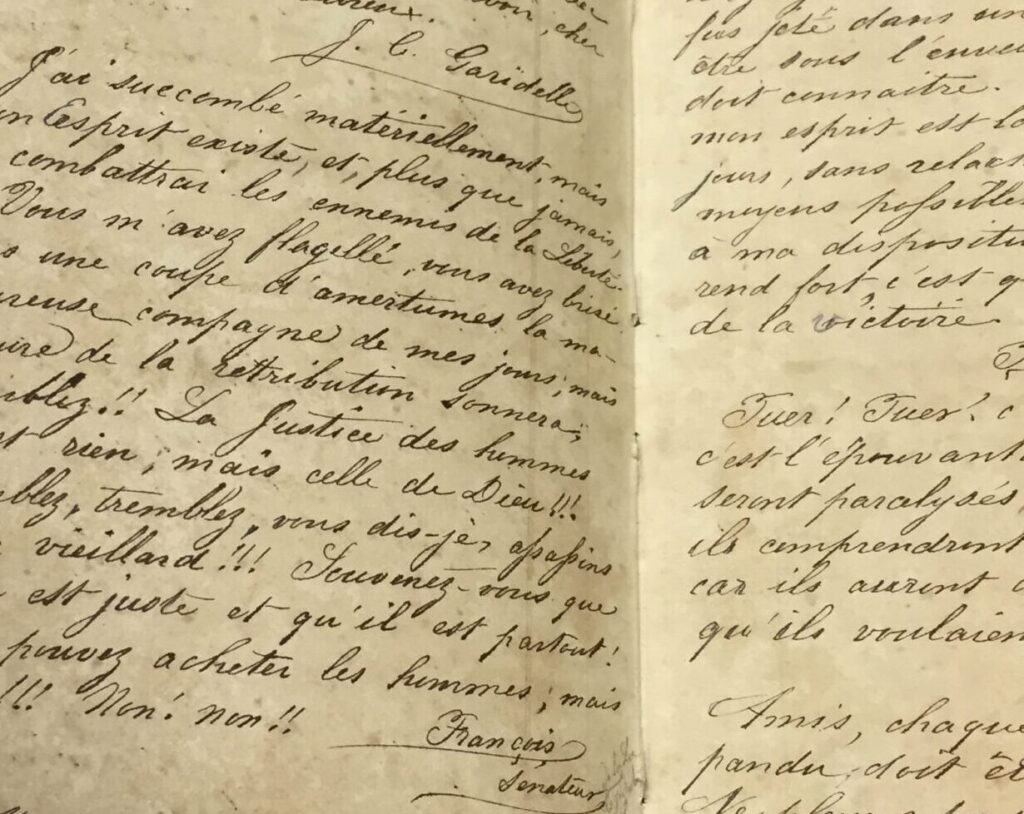 voir, cher
J. C. Garidelle
J'ai succombé matériellement, mais
Esprit existe, et, plus que jamais,
combattrai les ennemis de la Liberté.
Vous m'avez flagellé, vous avez brisé
une coupe d'amertumes la ma-
compagne de mes jours; mais
de la rétribution sonnera;
La Justice des hommes
rien; mais celle de Dieu!!!
tremblez, vous dis-je, assassins
vieillard!!! Souvenez-vous que
est juste et qu'il est partout!
pouvez acheter les hommes; mais
!!! Non! non!!
François
Senateur
fus jeté dans un
être sous l'
doit connaître.
mon esprit est
jours, sans
moyens possibles
à ma
rend fort, c'est
de la victoire
Tuer! Tuer!
c'est
seront paralysés
ils comprendront
car ils auront
qu'ils
Amis, chaque
pandu, doit